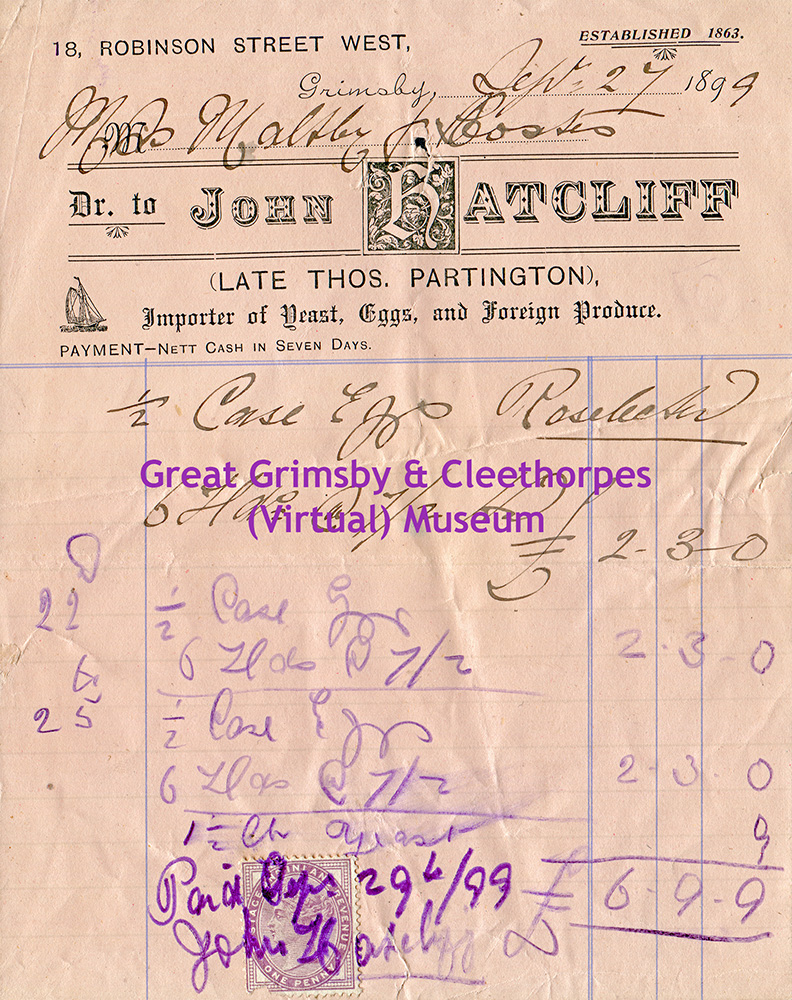 18, ROBINSON STREET WEST,
ESTABLISHED 1863.
Grimsby, Sept 27 1899
Mrs Maltby
Dr. to JOHN RATCLIFF
(LATE THOS. PARTINGTON),
Importer of Yeast, Eggs, and Foreign Produce.
PAYMENT—NETT CASH IN SEVEN DAYS.
1/2 Case Eggs
Great Grimsby & Cleethorpes
(Virtual) Museum
6 Hds @ 7/2 £ 2-3-0
22 1/2 Case Eggs
6 Hds @ 7/2 2-3-0
25 1/2 Case Eggs
6 Hds @ 7/2 2-3-0
1 1/2 Yeast 9
Paid Sep 29th/99 £ 6-9-9
John Ratcliff
ONE PENNY